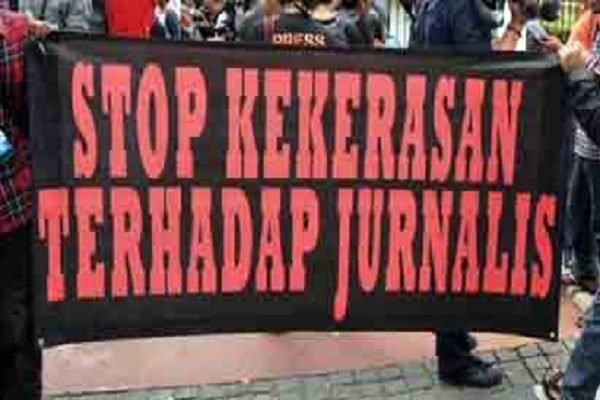 PRESS
STOP KEKERASAN
TERHADAP JURNALIS